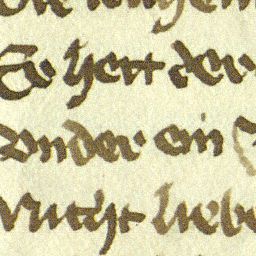 Er hett der
vnder ein
nicht liebe